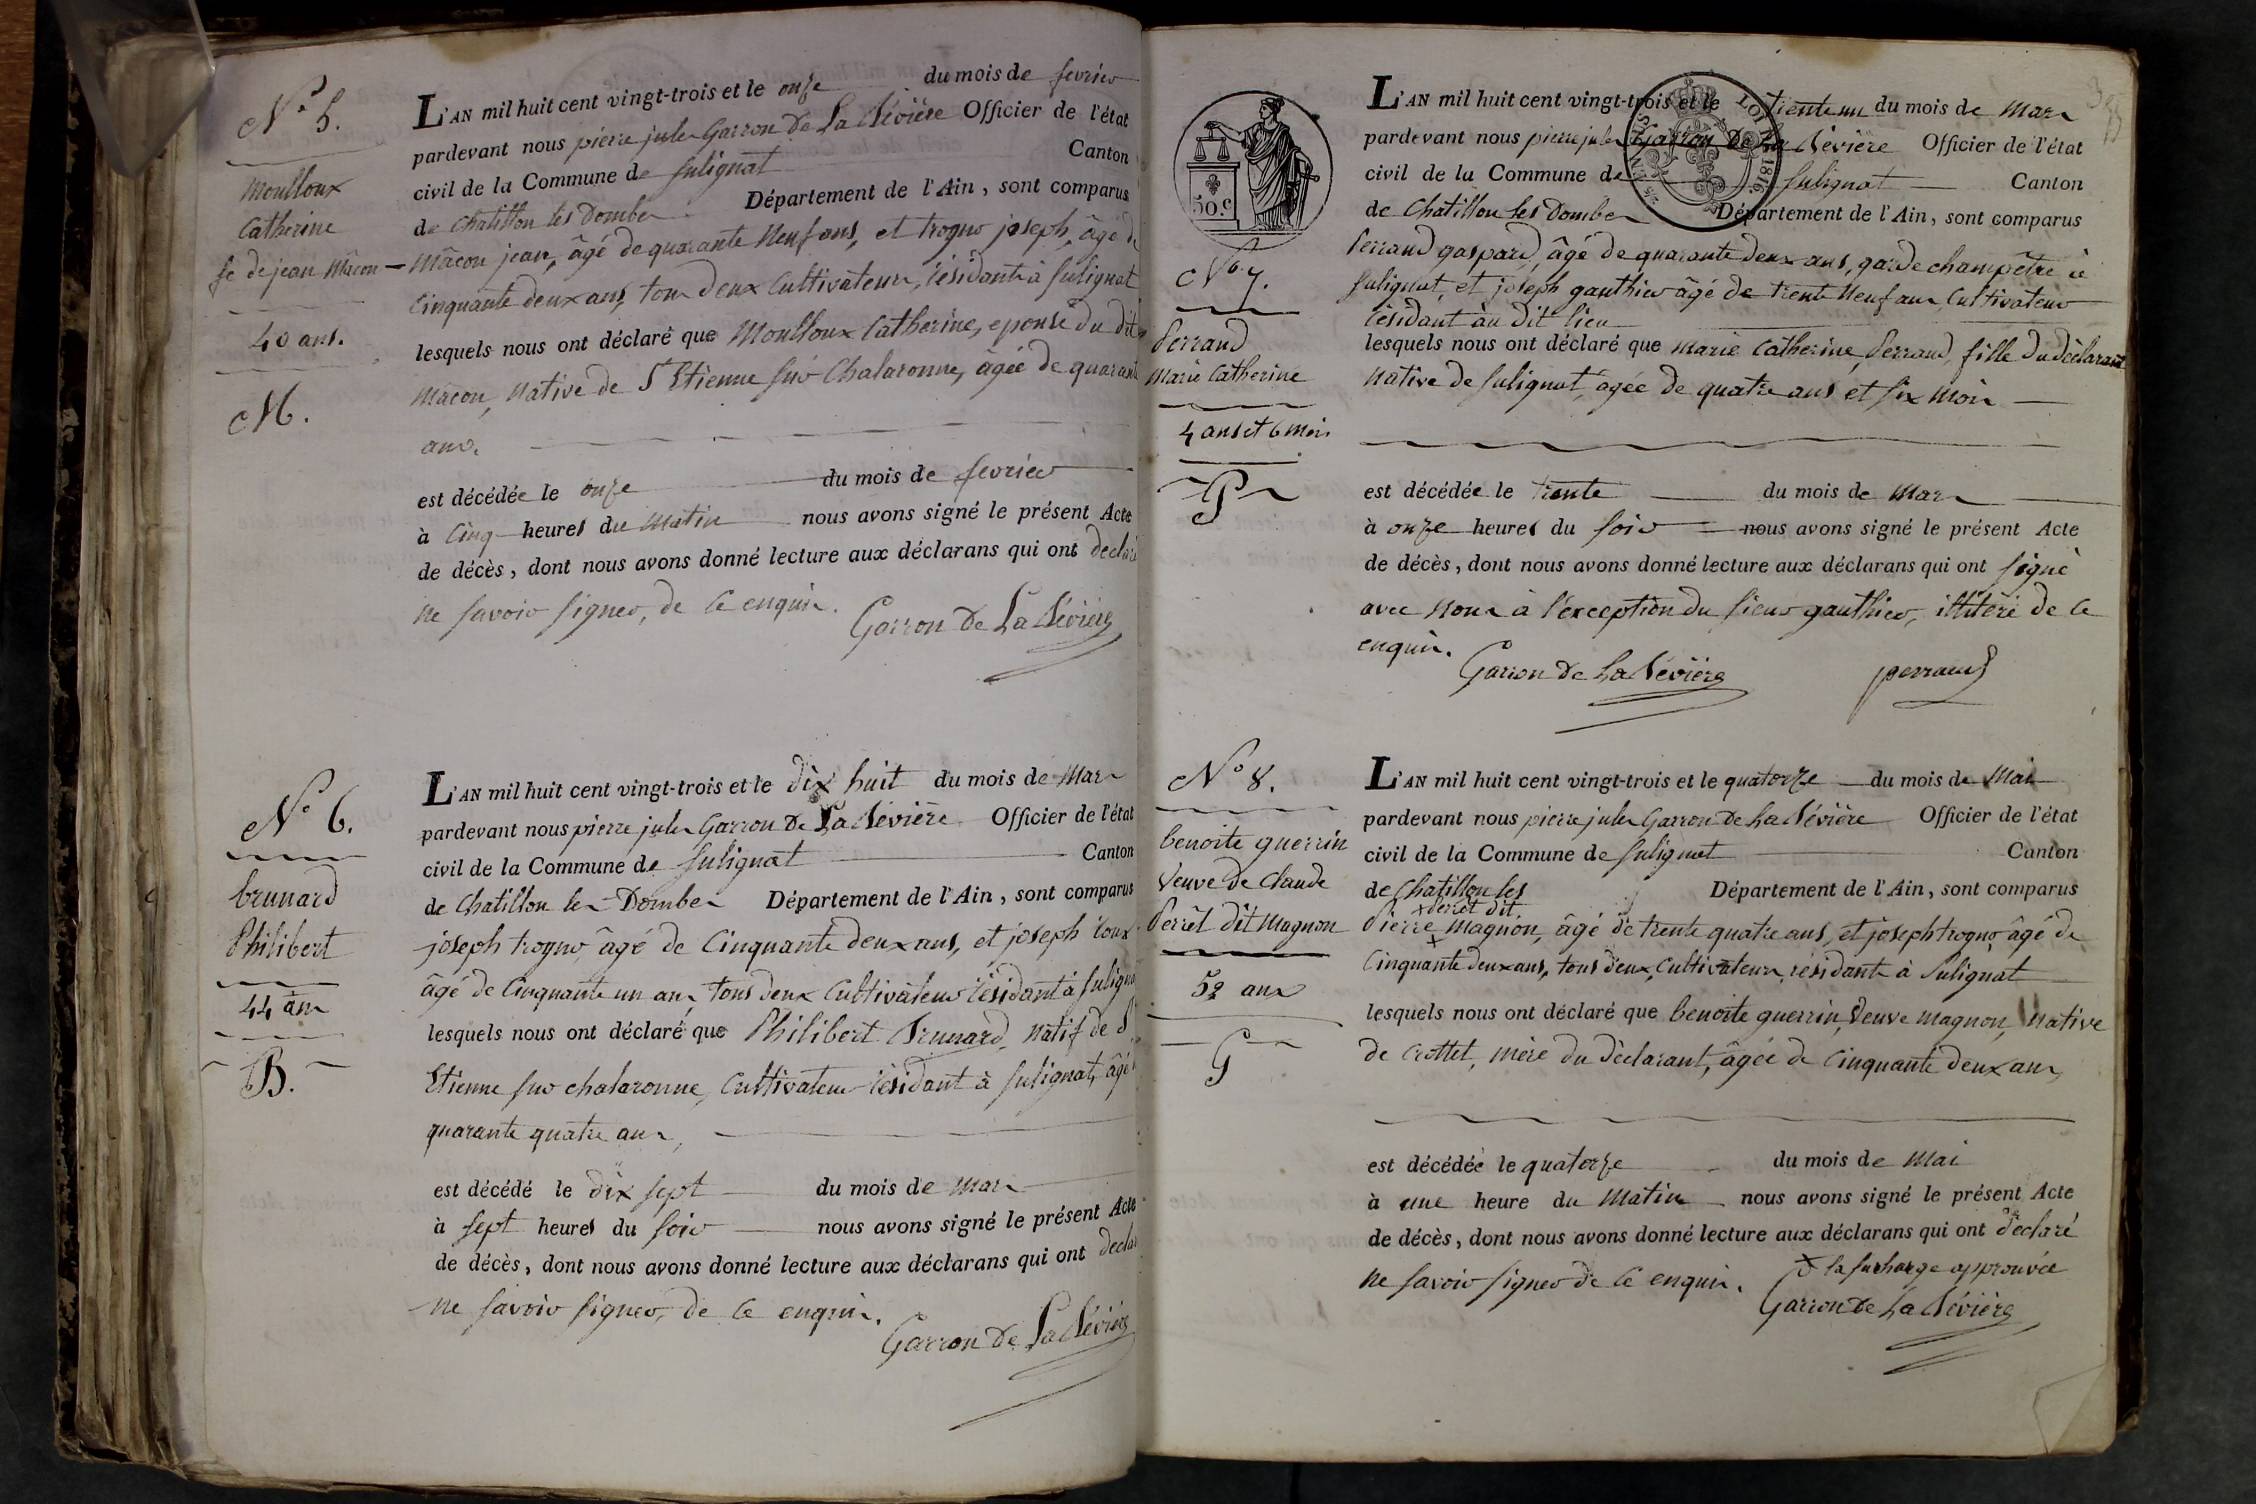 N° 5.
Moulloux
Catherine
fe de jean Mâcon
40 ans.
M.
L'AN mil huit cent vingt-trois et le onze du mois de fevrier
pardevant nous pierre jules Garron De La Bévière Officier de l'état
civil de la Commune de Sulignat Canton
de Chatillon les Dombes Département de l'Ain, sont comparus
Mâcon jean, âgé de quarante Neuf ans, et trogno joseph, âgé de
Cinquante deux ans, tous deux Cultivateurs, résidants à Sulignat
lesquels nous ont déclaré que Moulloux Catherine, epouse du dit
Mâcon, Native de St Etienne sur Chalaronne, âgée de quarante
ans.
est décédée le onze du mois de fevrier
à Cinq heures du Matin nous avons signé le présent Acte
de décès, dont nous avons donné lecture aux déclarans qui ont declaré
ne savoir signer, de ce enquis.
Garron De La Bévière
N° 6.
brunard
Philibert
44 ans
B.
L'AN mil huit cent vingt-trois et le dix huit du mois de Mars
pardevant nous pierre jules Garron De La Bévière Officier de l'état
civil de la Commune de Sulignat Canton
de Chatillon les Dombes Département de l'Ain, sont comparus
joseph trogno âgé de Cinquante deux ans, et joseph roux
âgé de Cinquante un ans, tous deux Cultivateurs résidant à Suligna
lesquels nous ont déclaré que Philibert Brunard, natif de St
Etienne sur chalaronne, Cultivateur résidant à Sulignat, âgé
quarante quatre ans,
est décédé le dix sept du mois de Mars
à sept heures du soir nous avons signé le présent Acte
de décès, dont nous avons donné lecture aux déclarans qui ont declar
ne savoir signer, de ce enquis.
Garron De La Bévière
50.c
LOI DE 1816.
N° 7.
Perrand
Marie Catherine
4 ans et 6 mois
P
L'AN mil huit cent vingt-trois et le trente un du mois de Mars
pardevant nous pierre jules Garron De La Bévière Officier de l'état
civil de la Commune de Sulignat Canton
de Chatillon les Dombes Département de l'Ain, sont comparus
Perrand gaspard, âgé de quarante deux ans, garde champêtre à
Sulignat, et joseph gauthier âgé de trente Neuf ans Cultivateur
résidant au dit lieu
lesquels nous ont déclaré que Marie Catherine Perrand, fille du déclarant
Native de Sulignat, âgée de quatre ans et six Mois
est décédée le trente du mois de Mars
à onze heures du soir nous avons signé le présent Acte
de décès, dont nous avons donné lecture aux déclarans qui ont signé
avec Nous à l'exception du sieur gauthier, illitéré de ce
enquis.
Garron De La Bévière perrand
N° 8.
benoite guerrin
Veuve de Claude
Perret dit Magnon
52 ans
G
L'AN mil huit cent vingt-trois et le quatorze du mois de Mai
pardevant nous pierre jules Garron De La Bévière Officier de l'état
civil de la Commune de Sulignat Canton
de Chatillon les Département de l'Ain, sont comparus
x perret dit
Pierre x Magnon, âgé de trente quatre ans, et joseph trogno âgé de
Cinquante deux ans, tous deux, Cultivateurs résidants à Sulignat
lesquels nous ont déclaré que benoite guerrin, Veuve Magnon, Native
de Crottet, mère du déclarant, âgée de cinquante deux ans,
est décédée le quatorze du mois de Mai
à une heure du Matin nous avons signé le présent Acte
de décès, dont nous avons donné lecture aux déclarans qui ont déclaré
ne savoir signer de ce enquis.
x la surcharge approuvée
Garron De La Bévière